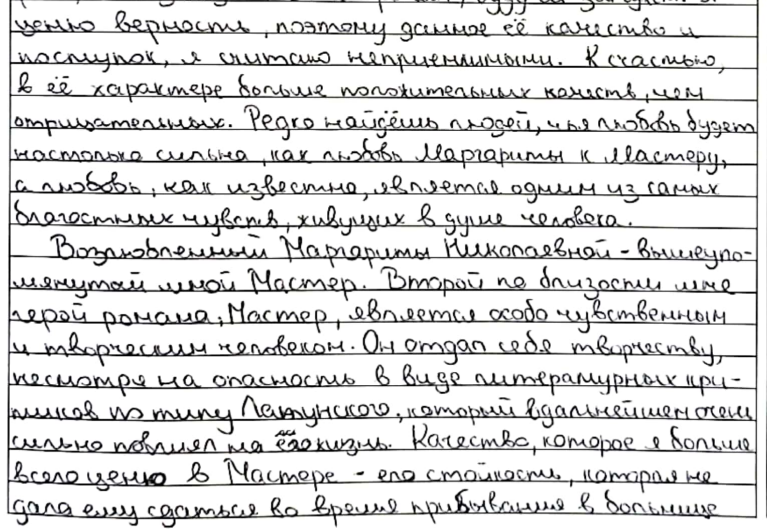 ценю верность, поэтому данное её качество и
поступок, я считаю неприемлимыми. К счастью,
в её характере больше положительных качеств, чем
отрицательных. Редко найдёшь людей, чья любовь будет
настолько сильна, как любовь Маргариты к Мастеру,
а любовь, как известно, является одним из самых
благостных чувств, живущих в душе человека.
Возлюбленный Маргариты Николаевной - вышеупо-
мянутый мной Мастер. Второй по близости мне
герой романа, Мастер, является особо чувственным
и творческим человеком. Он отдал себя творчеству,
несмотря на опасность в виде литературных кри-
тиков по типу Латунского, который в дальнейшем очень
сильно повлиял на его жизнь. Качество, которое я больше
всего ценю в Мастере - его стойкость, которая не
дала ему сдаться во время прибывания в больнице